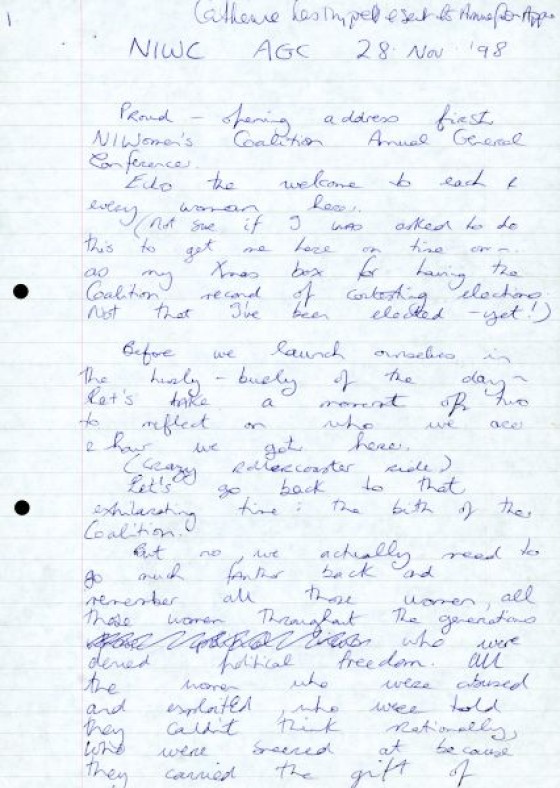 1
Catherine has typed & sent to Anne for App
NIWC AGC 28 Nov '98
Proud – opening address first
NIWomen's Coalition Annual General
Conference.
Echo the welcome to each &
every woman here.
(Not sure if I was asked to do
this to get me here on time or
as my Xmas box for having the
Coalition record of contesting elections.
Not that I've been elected – yet!)
Before we launch ourselves in
the hurly-burly of the day –
let's take a moment or two
to reflect on who we are
& how we got here.
(Crazy rollercoaster ride)
Let's go back to that
exhilarating time: the birth of the
Coalition.
But no, we actually need to
go much further back and
remember all those women, all
those women throughout the generations
who were
denied political freedom. All
the women who were abused
and exploited, who were told
they couldn't think rationally,
who were sneered at because
they carried the gift of